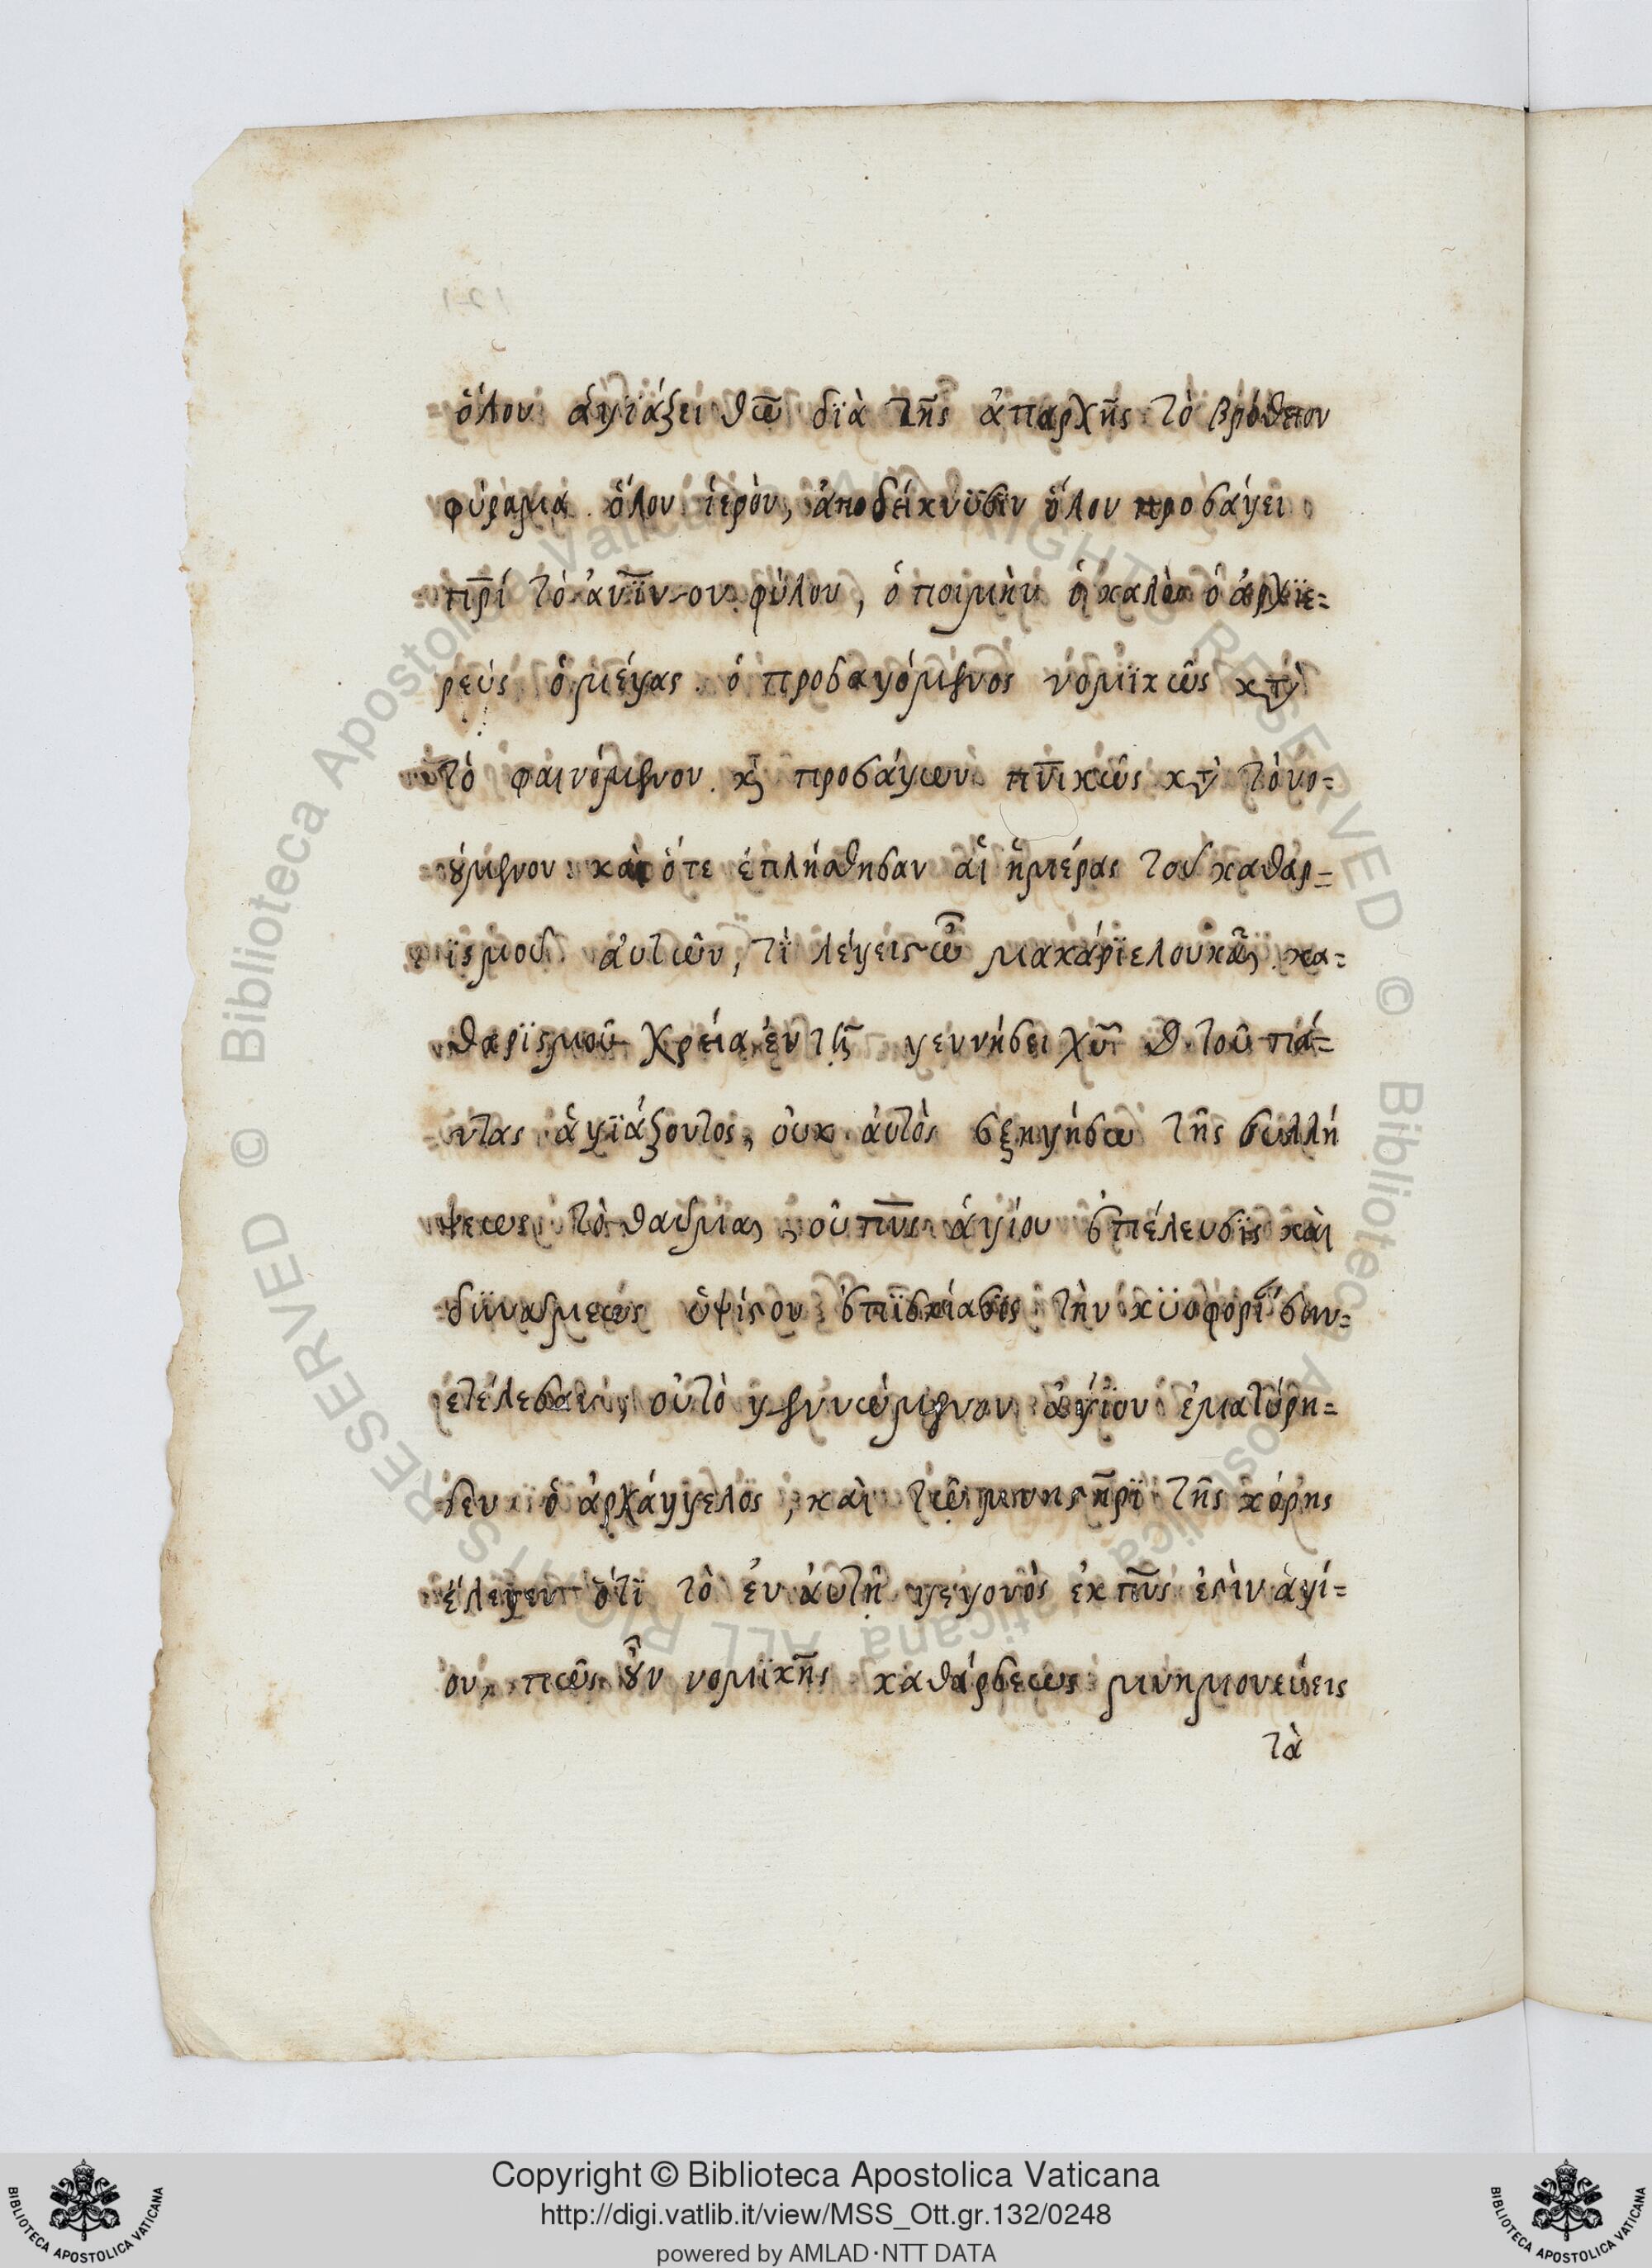 ὅλον ἁγϊάζει θω̅ δϊὰ τῆς ἀπαρχῆς τὸ βρότειον
φύραμα. ὅλον ἱερὸν, ἀποδείκνυσϊν ὅλον προσάγει
πρ̅ί τὸ ἀν̅ϊνον φύλον, ὁ ποιμὴν ὁ καλὸς ὁ ἀρχϊε=
ρεὺς ὁ μέγας. ὁ προσαγόμενος νομϊκῶς κτ̀
τὸ φαινόμενον. κ̀ προσάγων πν̅ικῶς κτ̀ τὸ νο=
ούμενον. καὶ ὅτε ἐπλήσθησαν αἱ ἡμέραι τοῦ καθαρ=
ϊσμοῦ αὐτῶν, τϊ λέγεις ὦ μακάρϊε λουκᾶ, κα=
θαρϊσμοῦ χρεία ἐν τῆ γεννήσει χυ̅ θ̅υ τοῦ πά=
ντας ἁγϊάζοντος, οὐκ αὐτὸς ἐξηγήσω τῆς συλλή
ψεως τὸ θαῦμα, οὐ πν̅ς ἁγίου ἐπέλευσϊς καὶ
δϋνάμεως ὑψίστου ἐπϊσκίασϊς τὴν κϋοφορΐαν συν=
ετέλεσαν, οὐ τὸ γεννώμενον ἅγϊον ἐμαρτύρη=
σεν ὁ ἀρχάγγελος, καὶ τῶ μνηστῆρϊ τῆς κόρης
ἔλεγεν ὅτϊ τὸ ἐν αὐτῆ γεγονὸς ἐκ πν̅ς ἐστὶν ἁγί=
ου, πῶς οὖν νομϊκῆς καθάρσεως μνημονεύεις
τὰ
Copyright © Biblioteca Apostolica Vaticana
http://digi.vatlib.it/view/MSS_Ott.gr.132/0248
powered by AMLAD·NTT DATA